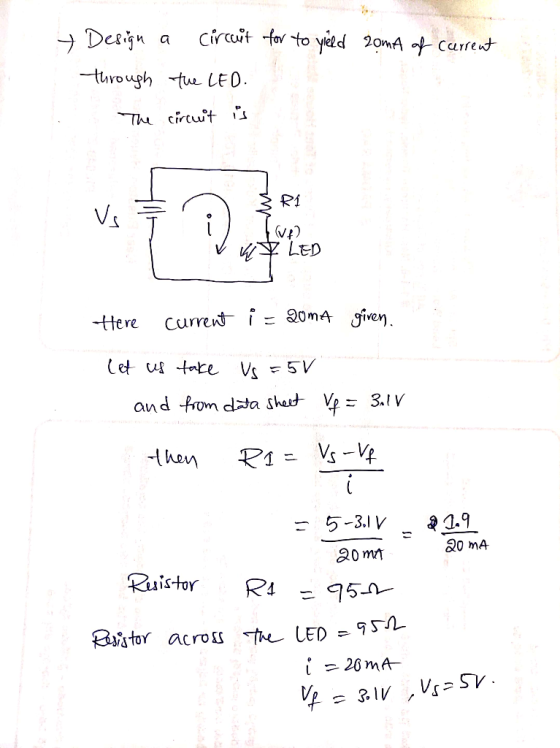 → Design a circuit for to yield 20mA of current
through the LED.
The circuit is
R1
Vs
i
(Vf)
LED
Here current i = 20mA given.
Let us take Vs = 5V
and from data sheet Vf = 3.1V
then R1 = Vs - Vf / i
= 5-3.1V / 20mA = 1.9 / 20 mA
Resistor R1 = 95Ω
Resistor across the LED = 95Ω
i = 20mA
Vf = 3.1V , Vs = 5V.